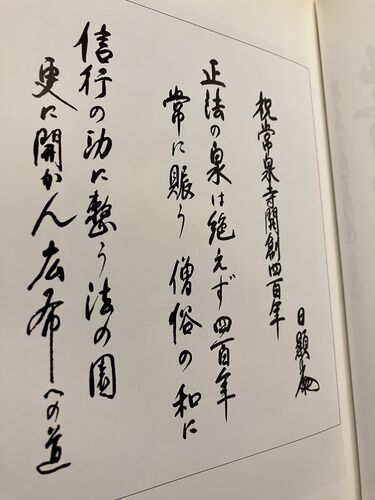 祝常泉寺開創四百年
日顕
正法の泉は絶えず四百年
常に賑う僧俗の和に
信行の功に整う法の園
更に開かん広布への道